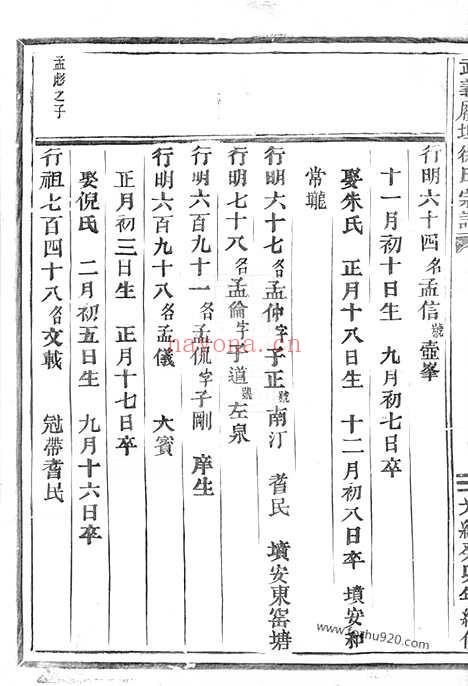 行明六十四名孟信號壺峯
十一月初十日生 九月初七日卒
娶朱氏 正月十八日生 十二月初八日卒 墳安和
常隴
行明六十七名孟仲字子正號南汀 耆民 墳安東窑塘
行明七十八名孟倫字子道號左泉
行明六百九十一名孟侃字子剛 庠生
行明六百九十八名孟儀 大賓
正月初三日生 正月十七日卒
娶倪氏 二月初五日生 九月十六日卒
孟彪之子
行祖七百四十八名文載 冠帶耆民
nayona.cn